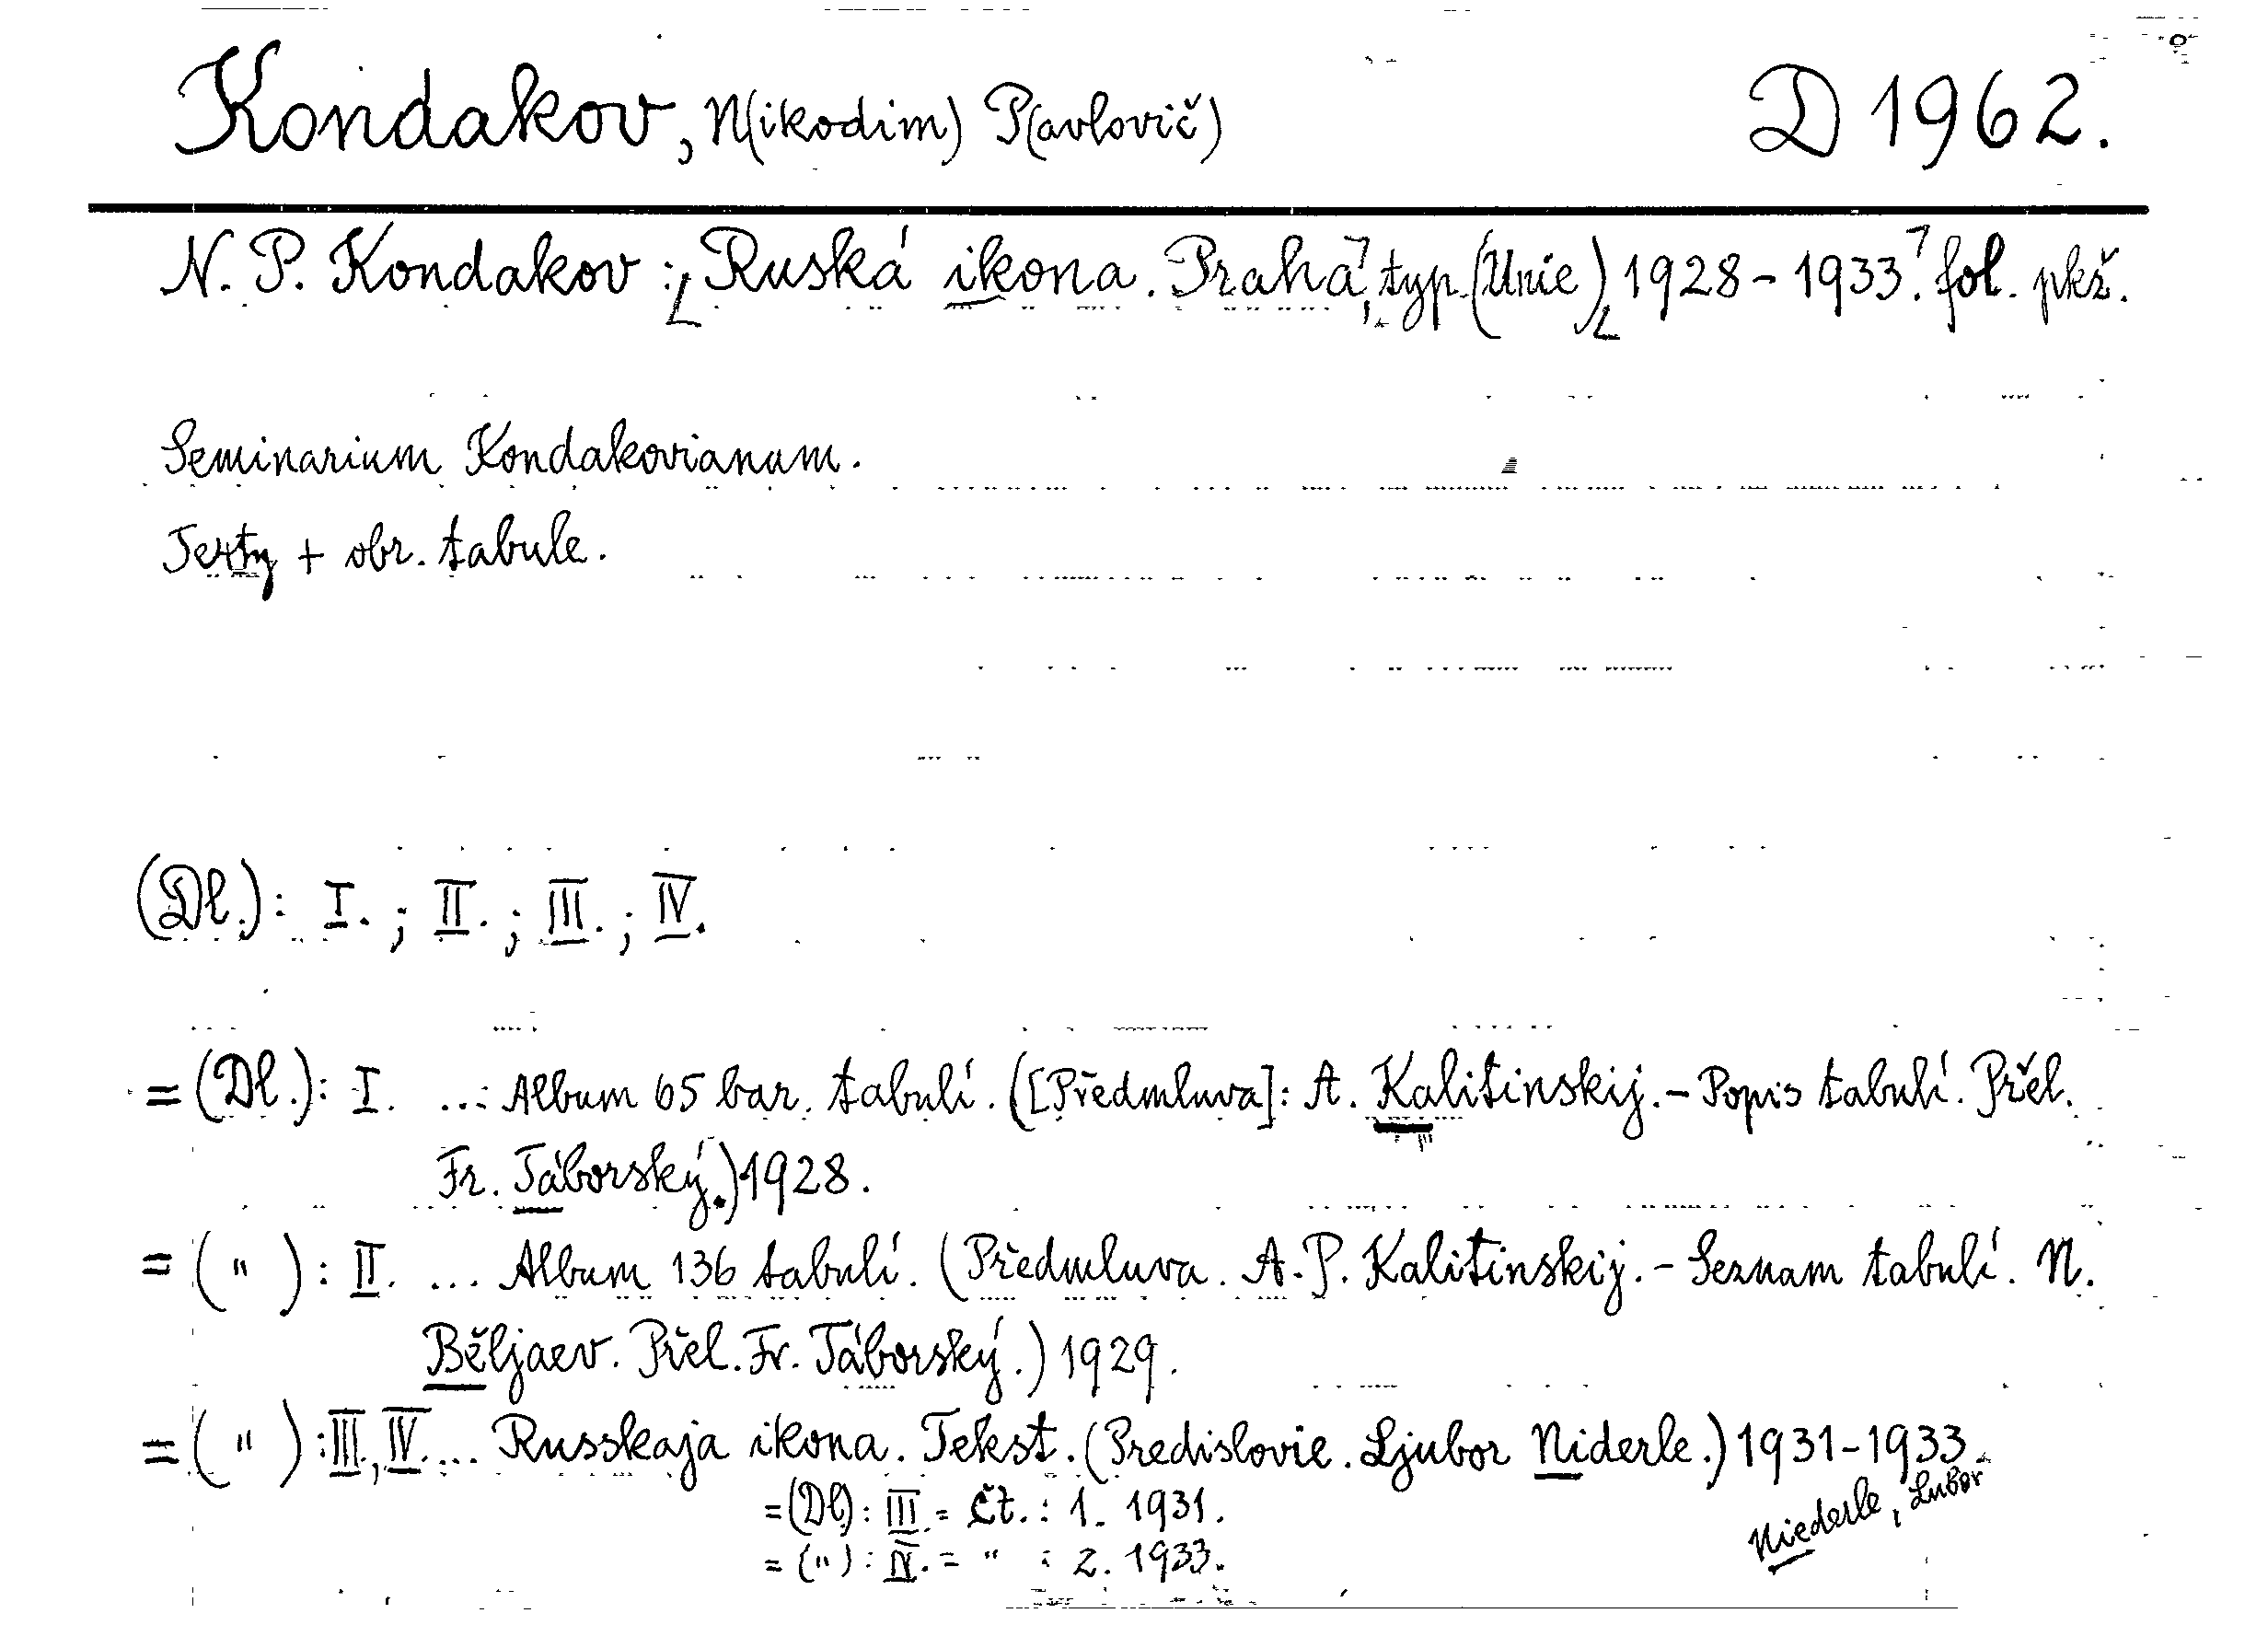 Kondakov, N(ikodim) P(avlovič) D 1962.
N. P. Kondakov: [Ruská ikona. Praha], typ. (Unie) [1928-1933.] fol. pkž.
Seminarium Kondakovianum.
Texty + obr. tabule.
(Dl.): I.; II.; III.; IV.
= (Dl.): I. ...: Album 65 bar. tabulí. ([Předmluva]: A. Kalitinskij. - Popis tabulí. Přel.
Fr. Táborský.) 1928.
= ( " ): II. ... Album 136 tabulí. (Předmluva. A. P. Kalitinskij. - Seznam tabulí. N.
Běljaev. Přel. Fr. Táborský.) 1929.
= ( " ): III., IV. ... Russkaja ikona. Tekst. (Predislovie. Ljubor Niderle.) 1931-1933.
= (Dl): III. = Čt.: 1. 1931.
= ("): IV. = " : 2. 1933.
Niederle, Lubor